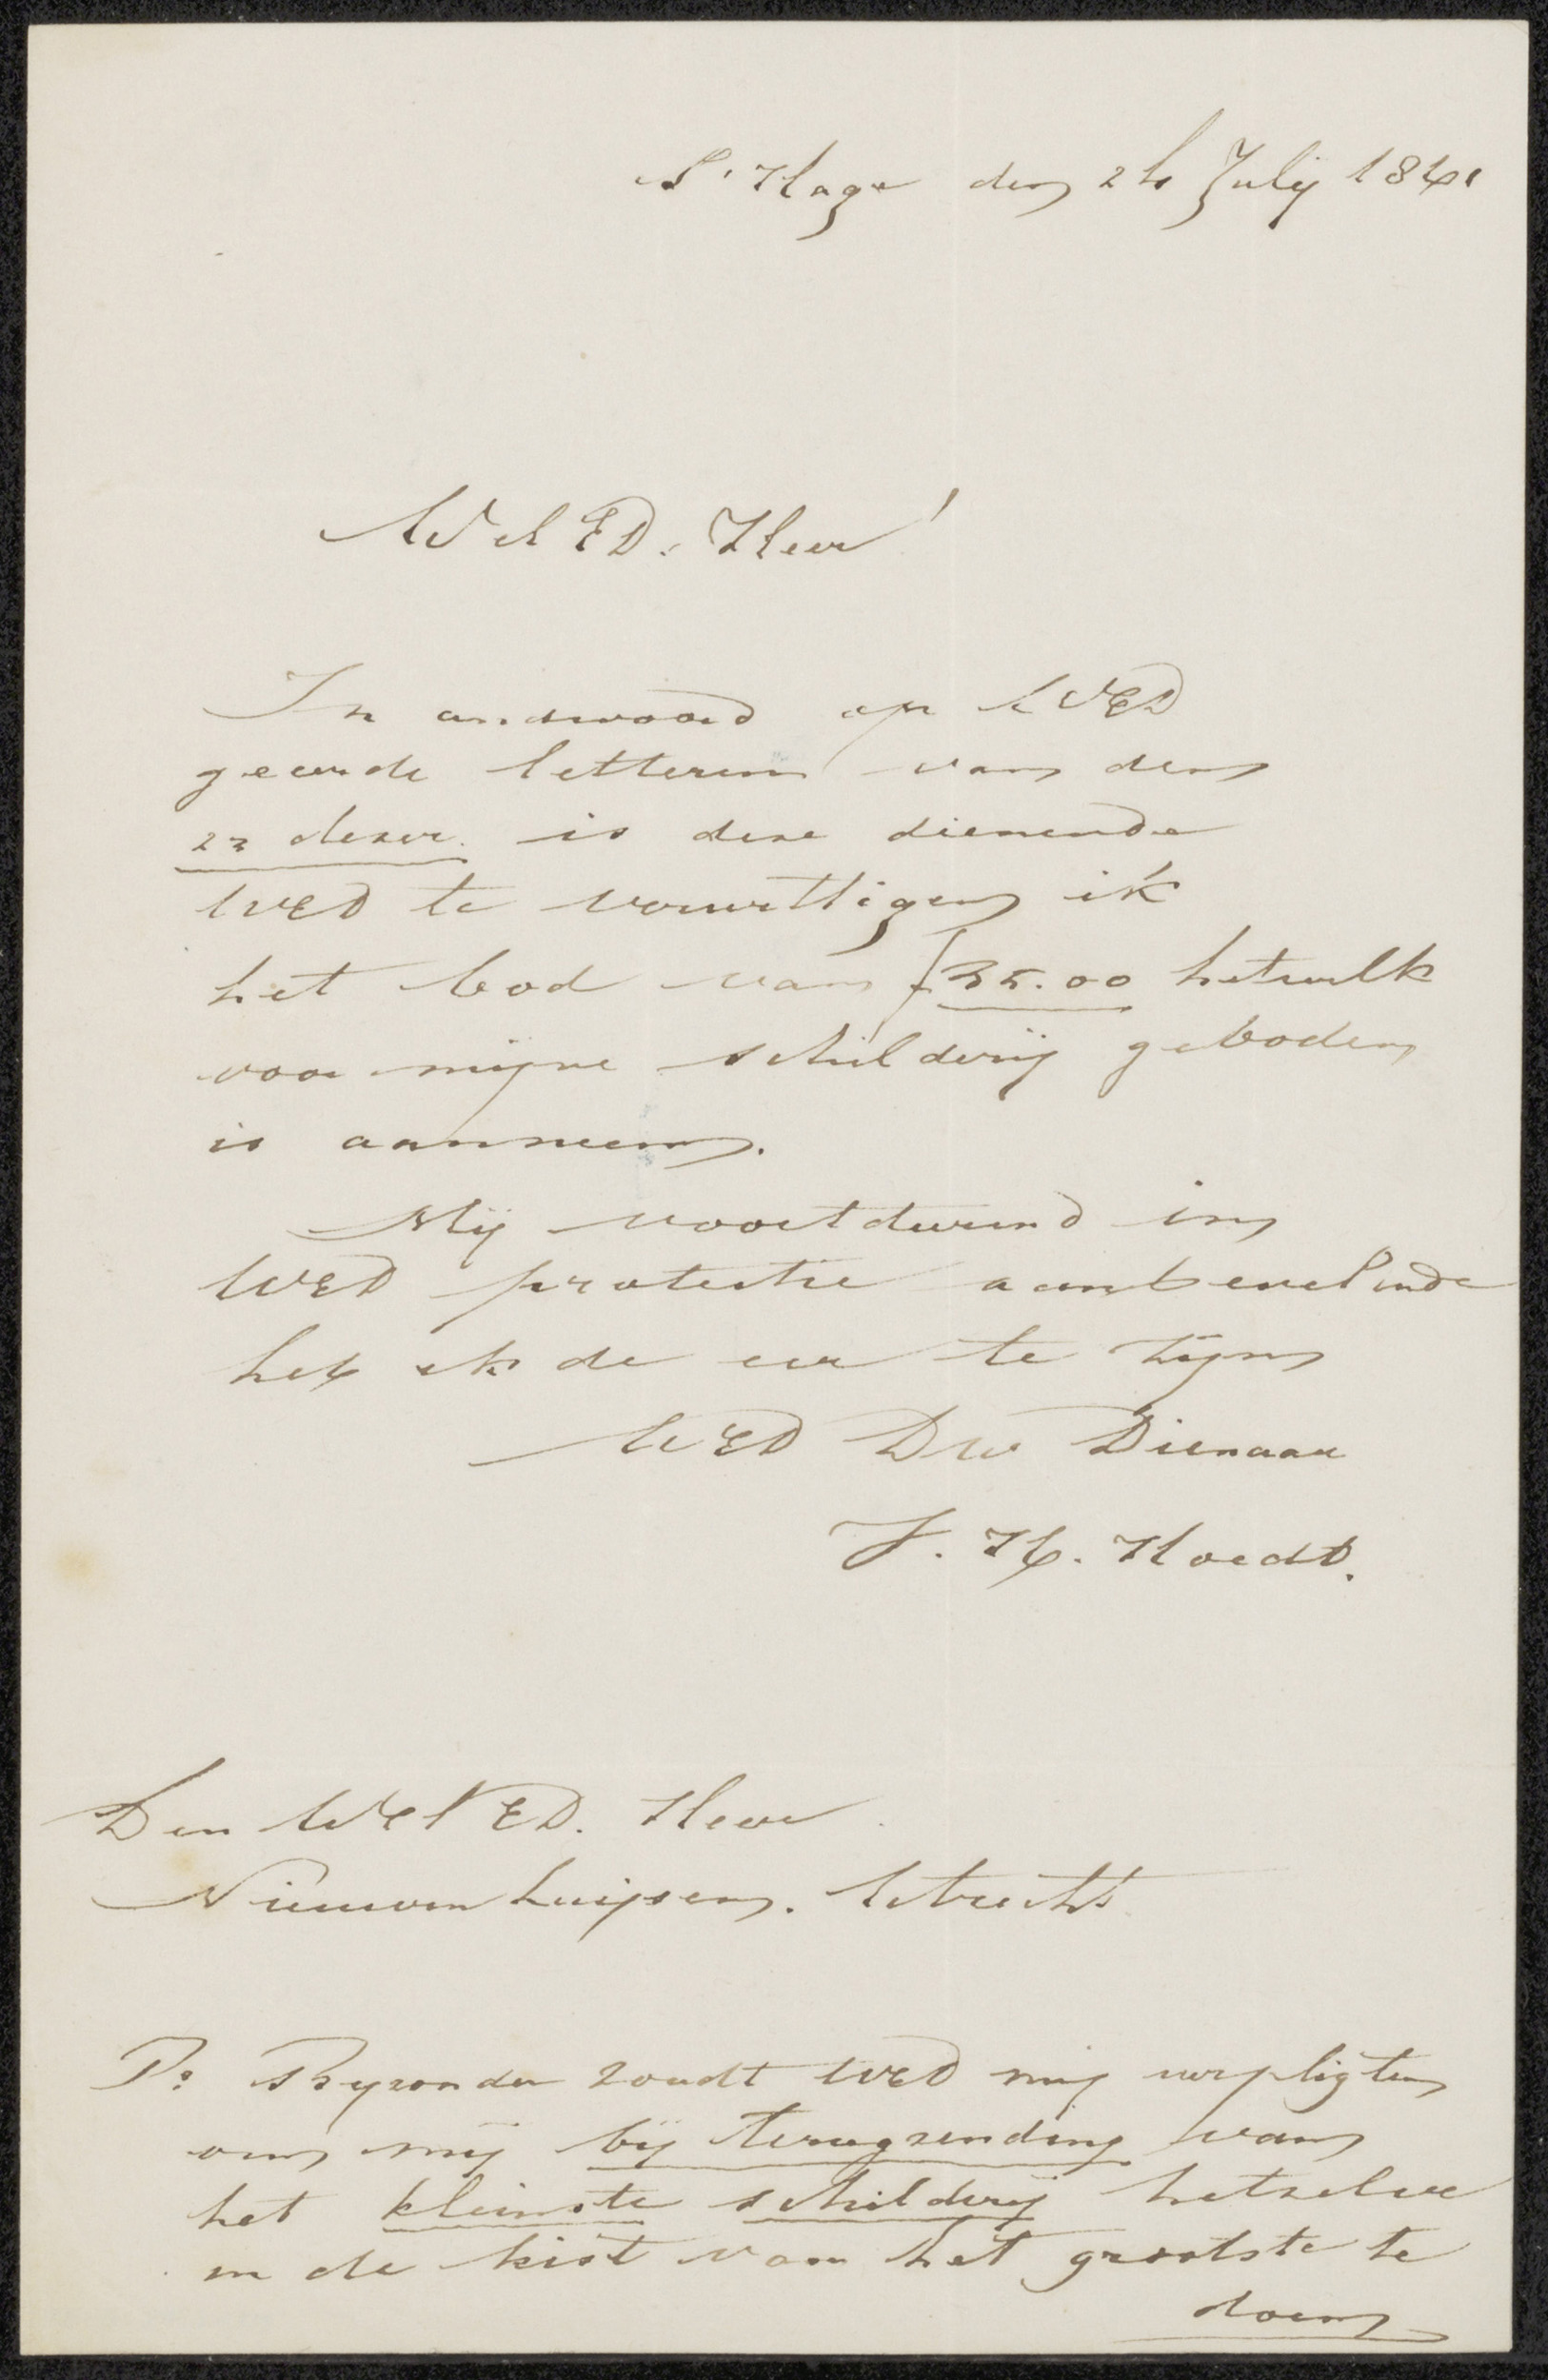 S'Hage den 24 Julij 1841
Wel ED. Heer!
In andwoord op UWED
geeerde letteren van den
23 dezer. is deze dienende
UWED te verwittigen ik
het bod van f 35.00 hetwelk
voor mijne schilderij geboden
is aanneem.
Mij voortdurend in
UWED protectie aanbevelende
heb ik de eer te zijn
UWED DW Dienaar
J. H. Hoedt.
Den Wel ED. Heer
Nieuwenhuijsen. Utrecht
Ps Byzonder zoudt UWED mij verpligten
om mij bij terugzending van
het kleinste schilderij hetzelve
in de kist van het grootste te
doen